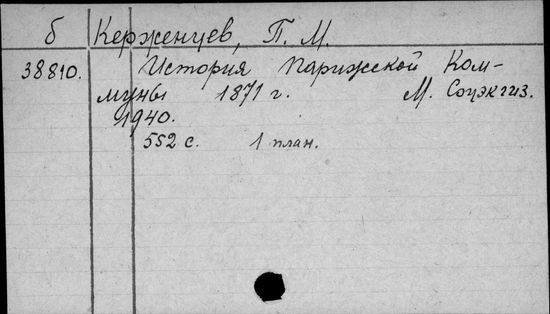 б Керженцев, П. М.
38810. История Парижской Ком-
муны 1871 г. М. Соцэкгиз.
1940.
552 с. 1 план.